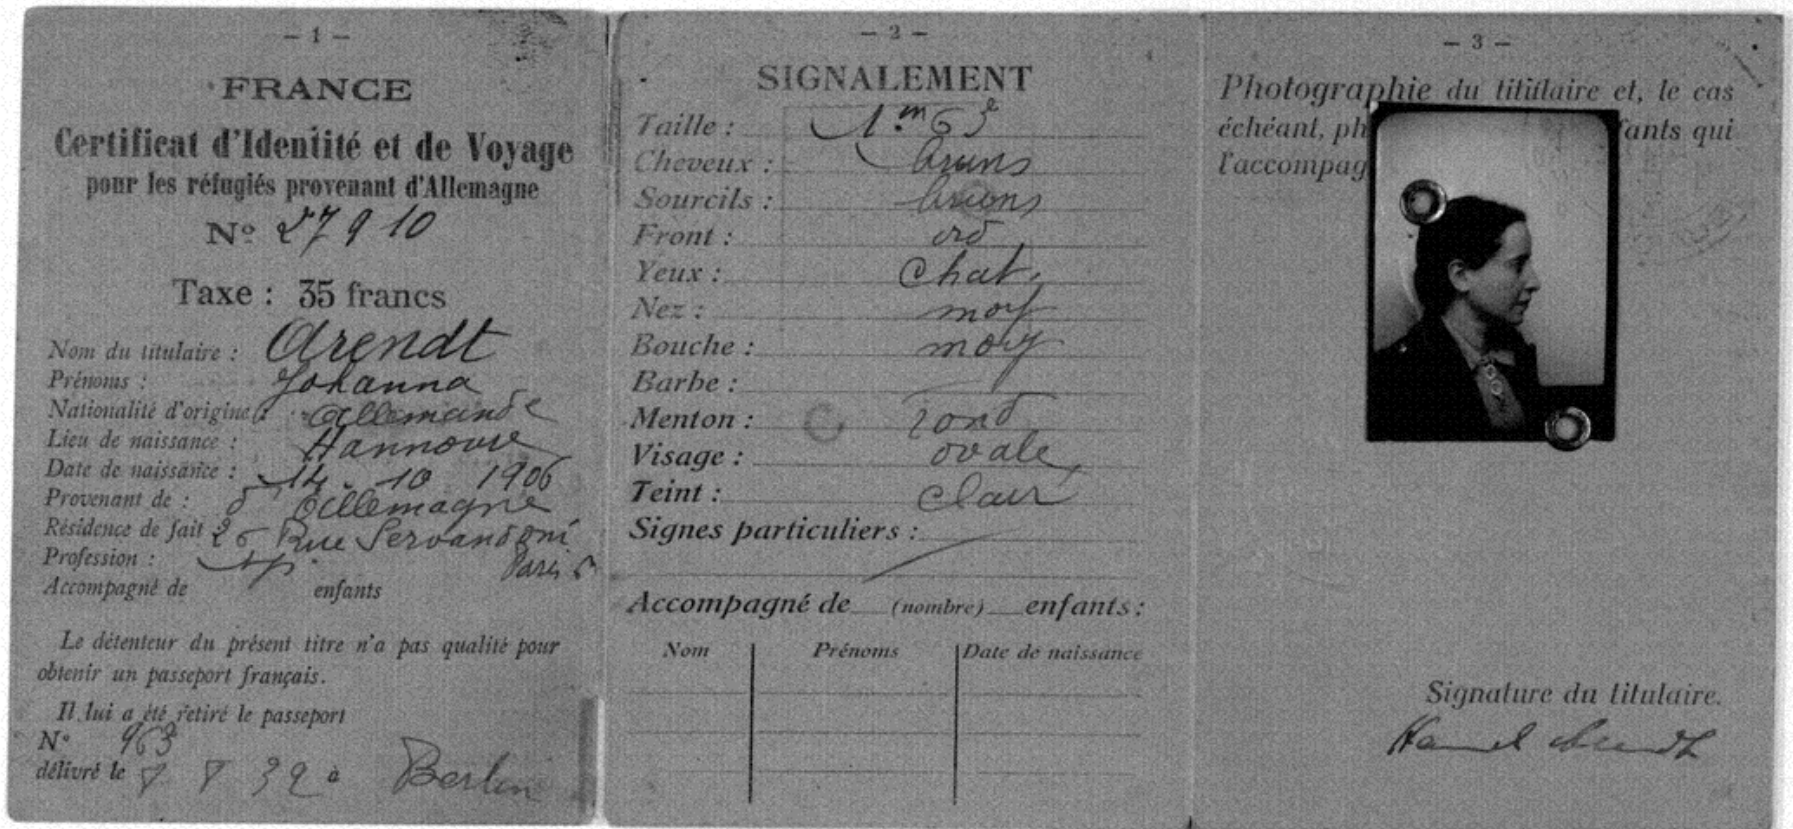 – 1 –
FRANCE
Certificat d'Identité et de Voyage
pour les réfugiés provenant d'Allemagne
N° 27910
Taxe : 35 francs
Nom du titulaire : Arendt
Prénoms : Johanna
Nationalité d'origine : allemande
Lieu de naissance : Hannovre
Date de naissance : 14 - 10 1906
Provenant de : d'Allemagne
Résidence de fait Rue Servandoni
Paris
Profession : sp.
Accompagné de enfants
Le détenteur du présent titre n'a pas qualité pour
obtenir un passeport français.
Il lui a été retiré le passeport
N° 963
délivré le 32 à Berlin
– 2 –
SIGNALEMENT
Taille : 1.m 63
Cheveux : bruns
Sourcils : bruns
Front : ord
Yeux : Chat.
Nez : moy
Bouche : moy
Barbe :
Menton : rond
Visage : ovale
Teint : clair
Signes particuliers :
Accompagné de (nombre) enfants :
Nom Prénoms Date de naissance
– 3 –
Photographie du titulaire et, le cas
échéant, ph fants qui
l'accompag
Signature du titulaire.
Arendt